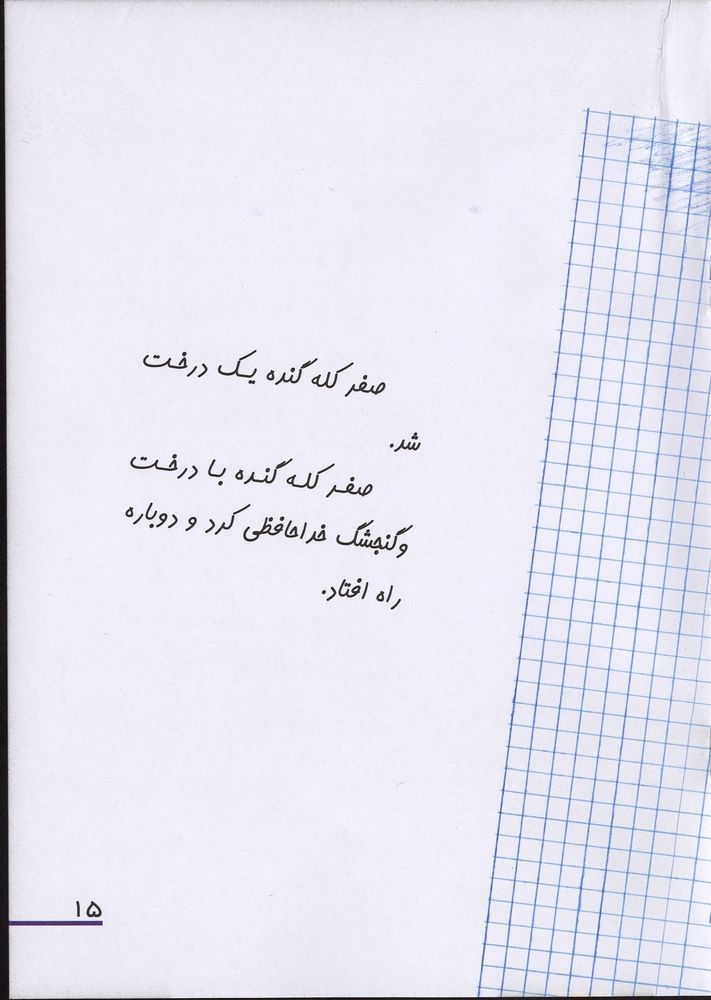 صفر کله گنده یک درخت
شد.
صفر کله گنده با درخت
و گنجشگ خداحافظی کرد و دوباره
راه افتاد.
۱۵